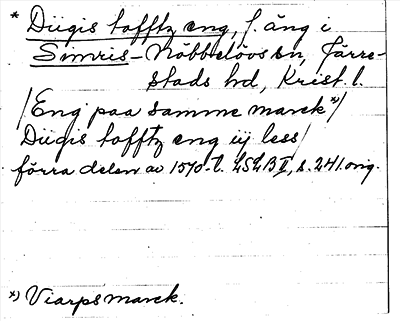 * Diigis tofftz eng, f. äng i
Simris-Nöbbelövs sn, Järre-
stads hd, Krist. l.
/Eng paa samme marck*)/
Diigis tofftz eng iij less/
förra delen av 1570-t. LSLB II, s. 241. orig.
*) Viarps marck.